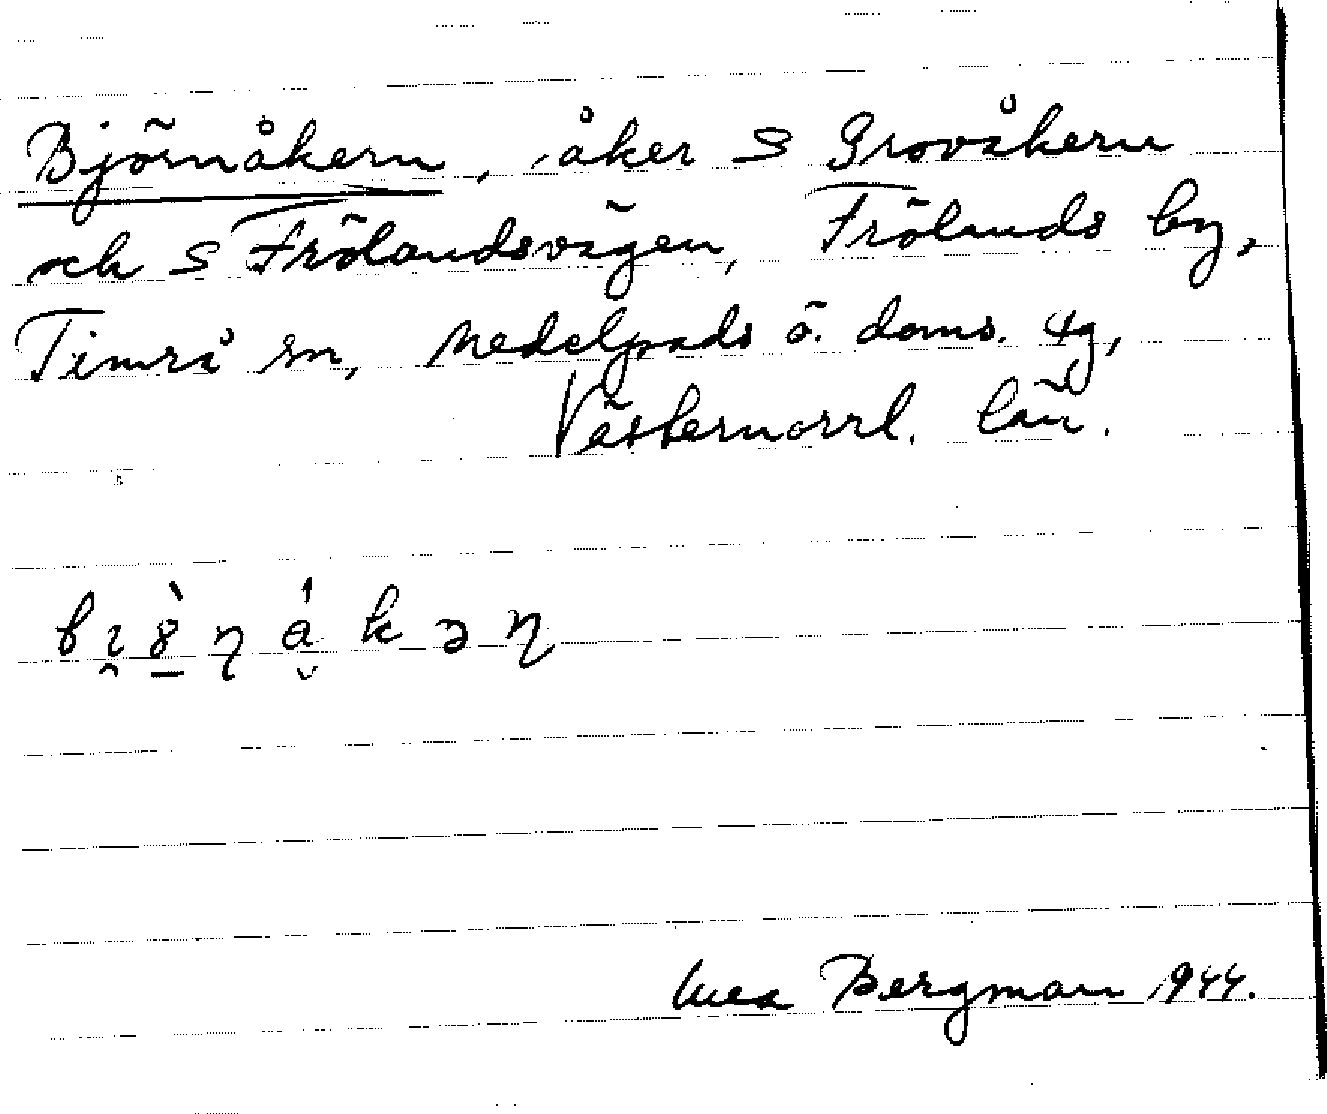 Björnåkern, åker S Grovåkern
och S Frölandsvägen, Frölands by,
Timrå sn, Medelpads ö. doms. tg,
Västernorrl. län.
Bergman 1944.